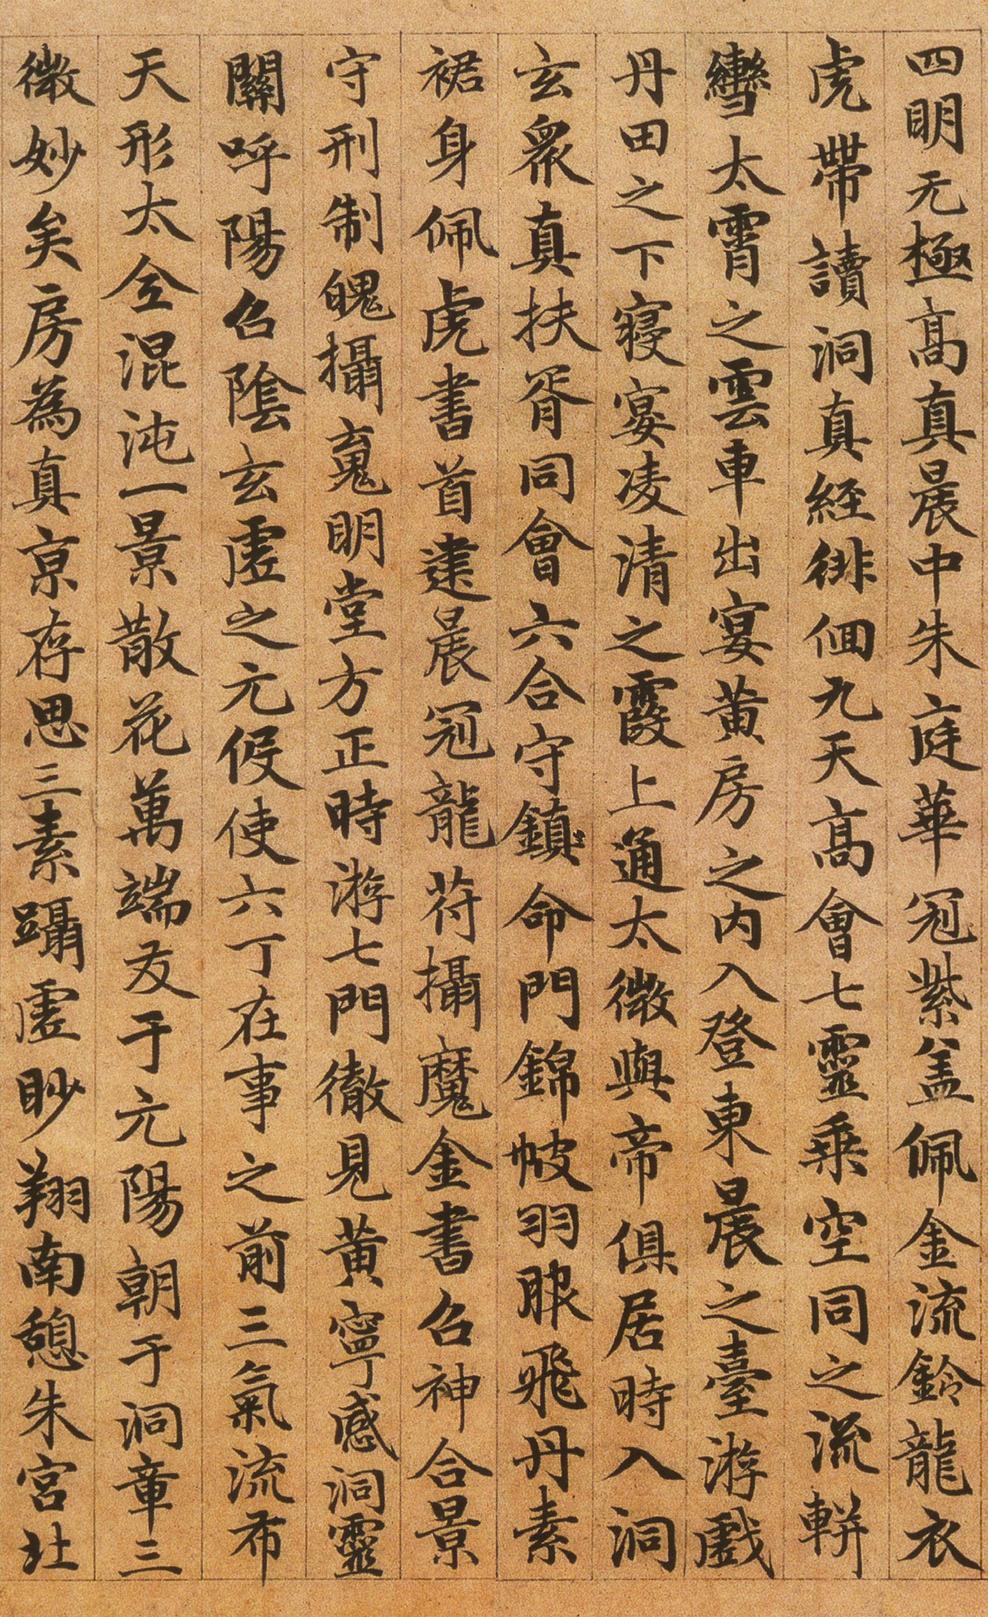 四明无極高真晨中朱庭華冠紫盖佩金流鈴龍衣
虎帶讀洞真經徘徊九天高會七靈乗空同之流軿
轡太霄之雲車出宴黄房之内入登東晨之臺游戲
丹田之下寝宴凌清之霞上通太微與帝俱居時入洞
玄衆真扶胥同會六合守鎮命門錦帔羽服飛丹素
裙身佩虎書首建晨冠龍苻攝魔金書召神合景
守刑制魄攝䰟明堂方正時游七門徹見黄寧感洞靈
關呼陽召隂玄虚之元假使六丁在事之前三氣流布
天形太仝混沌一景散花萬端友于元陽朝于洞章三
微妙矣房為真京存思三素躡虚眇翔南憩朱宮北